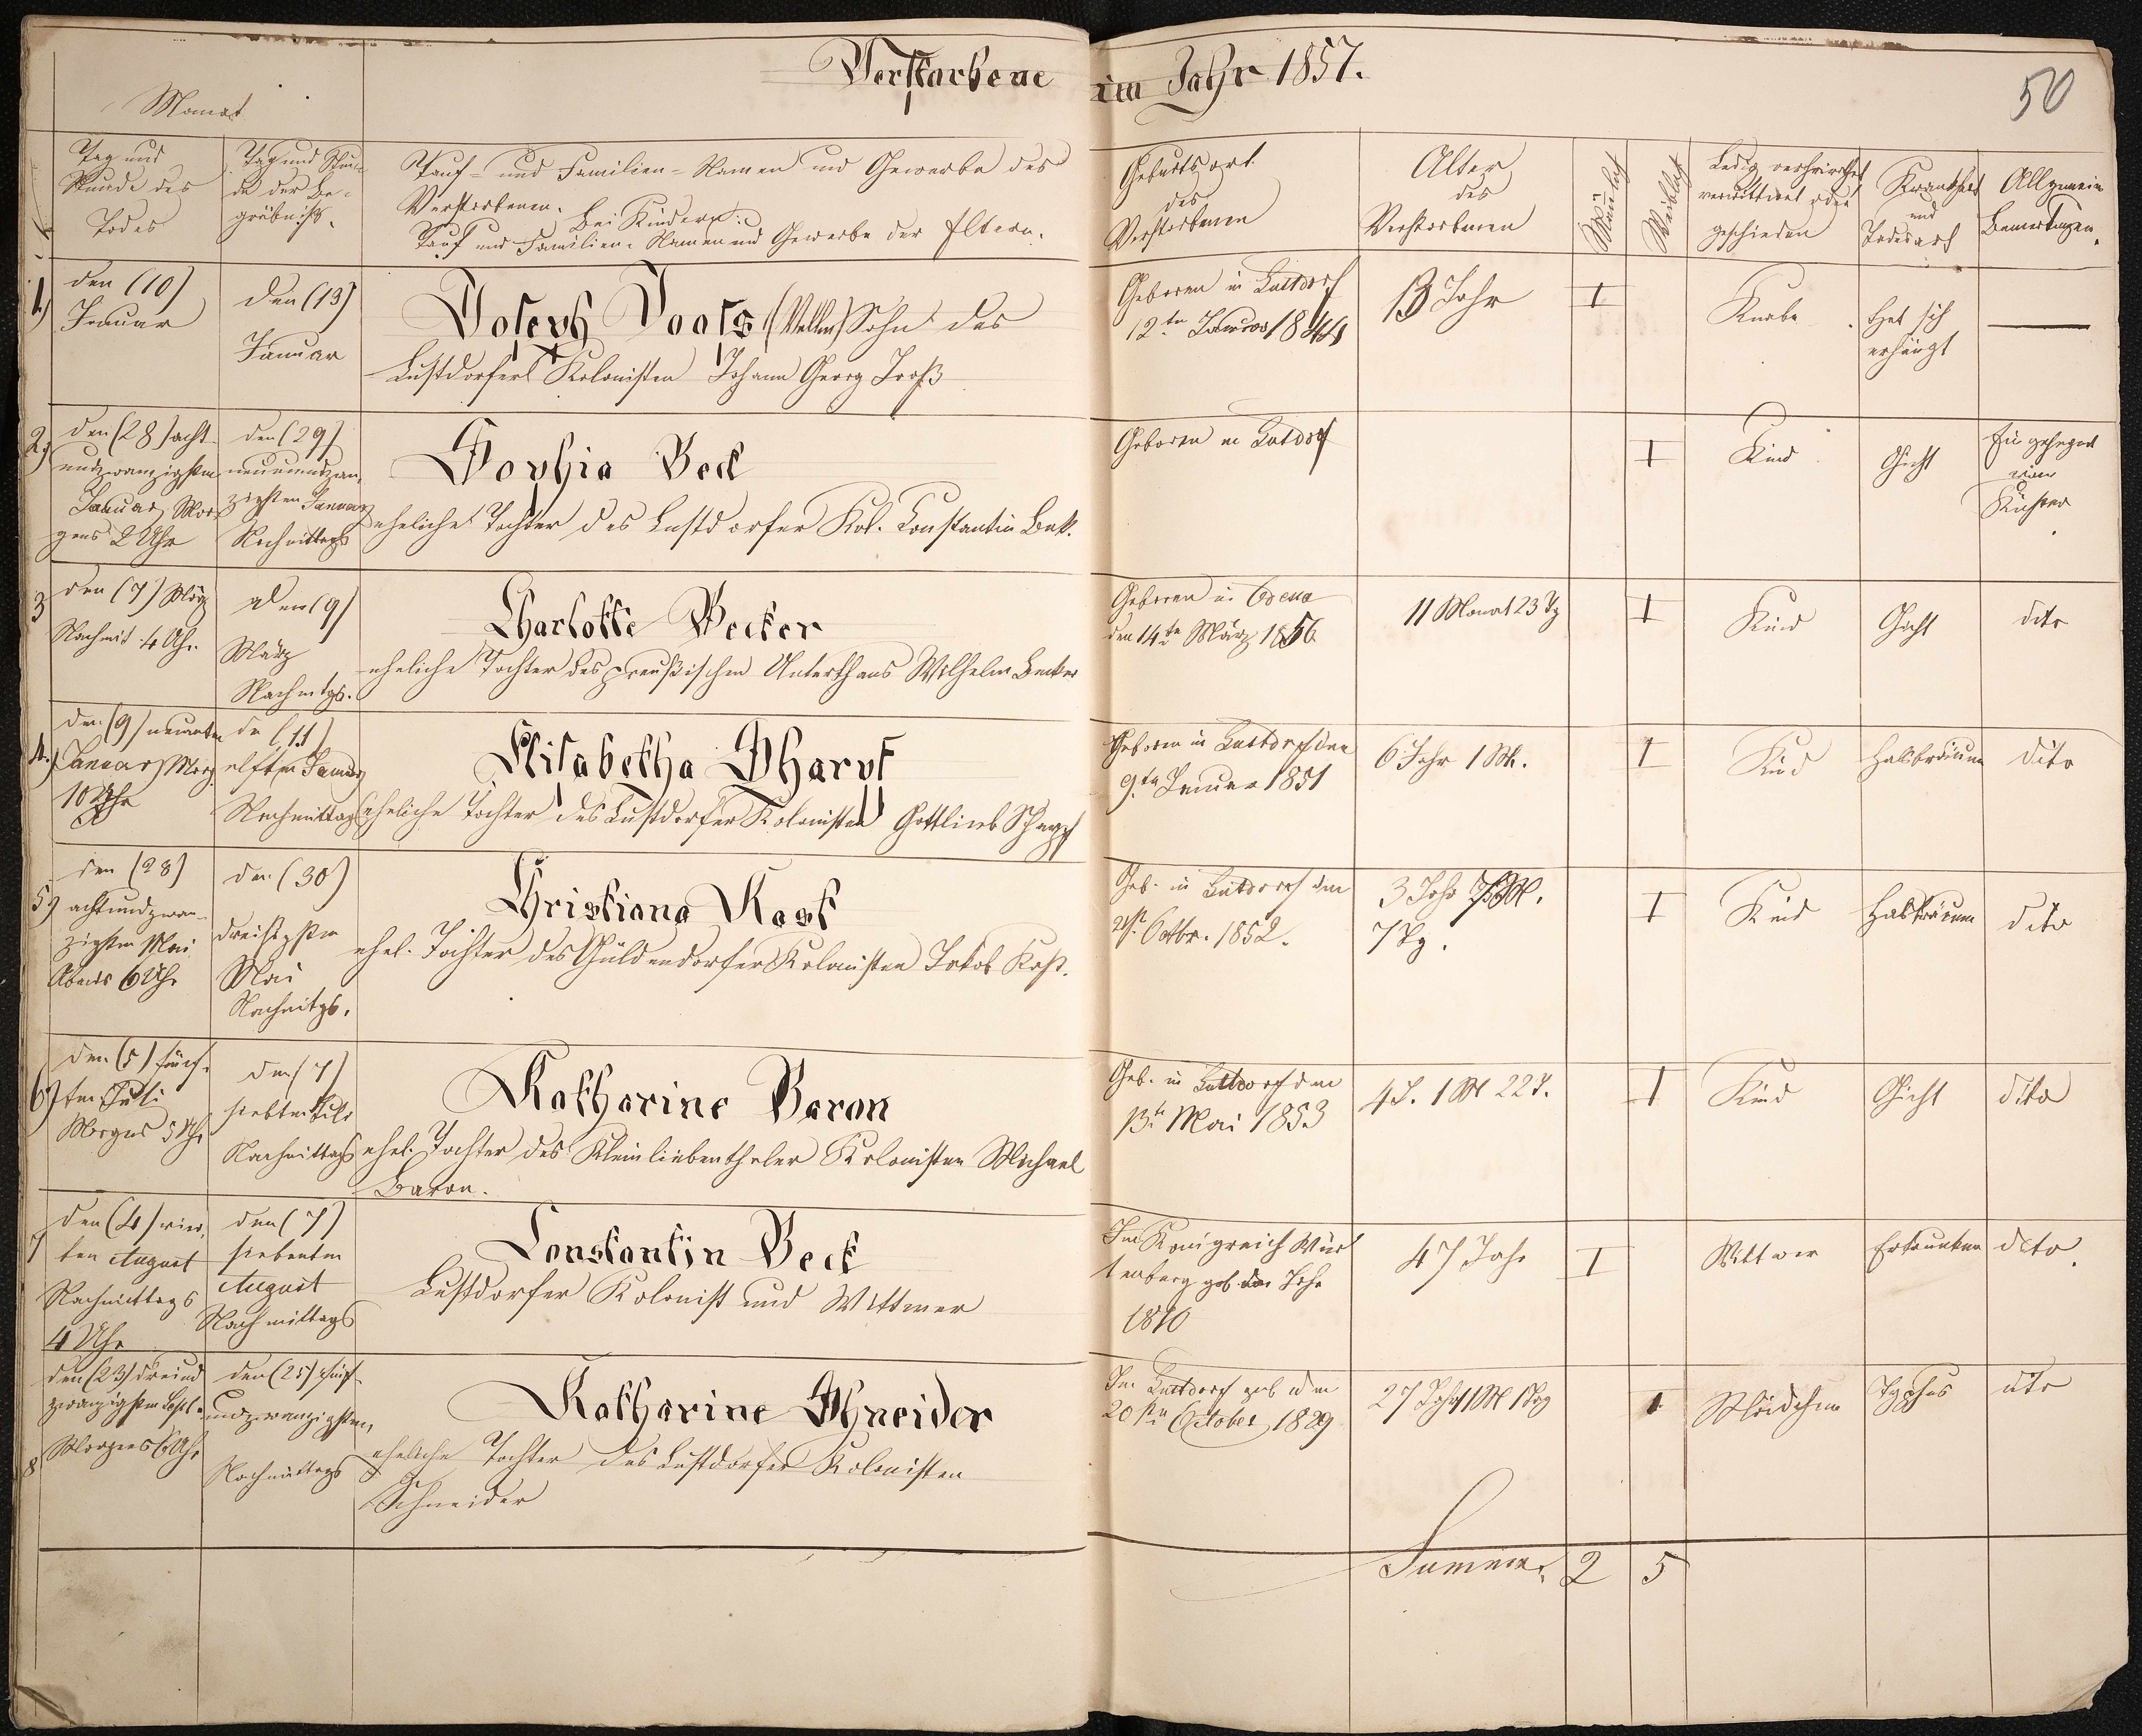 Verstorbene im Jahr 1857.
50
Monat
Tag und
Stunde des
Todes
Tag und Stun-
de der Be-
gräbniß.
Tauf- und Familien-Namen und Gewerbe des
Verstorbenen.
Bei Kindern:
Tauf und Familien-Namen und Gewerbe der Eltern.
Geburtsort
des
Verstorbenen
Alter
des
Verstorbenen
Männlich
Weiblich
Ledig verheirathet
verwittwet oder
geschieden
Krankheit
und
Todesart
Allgemein
Bemerkungen.
1)
den (10)
Januar
den (13)
Januar
Joseph Jooss Sohn des
Lustdorfer Kolonisten Johann Georg Jooß
Geboren in Lustdorf
12ten Januar 1844
13 Jahr
1
Knabe
Hat sich
erhängt
—
2)
den (28) acht-
undzwanzigsten
Januar Mor-
gens 2 Uhr
den (29)
neunundzwan-
zigsten Januar
Nachmittags
Sophia Beck
eheliche Tochter des Lustdorfer Kol. Constantin Bek.
Geboren in Lustdorf
1
Kind
Gicht
Eingesegnet
vom
Küster
3
den (7) März
Nachmit. 4 Uhr.
den (9)
März
Nachmtgs.
Charlotte Becker
eheliche Tochter des preußischen Unterthans Wilhelm Becker
Geboren in Odessa
den 14ten März 1856
11 Monat 23 Tg
1
Kind
Gicht
dito
4.)
den (9) neunten
Januar Morg.
10 Uhr
den (11)
elften Januar
Nachmittags
Elisabetha Scharpf
eheliche Tochter des Lustdorfer Kolonisten Gottlieb Scharpf
Geboren in Lustdorf den
9ten Januar 1851
6 Jahr 1 M.
1
Kind
Halsbräune
dito
5)
den (28)
achtundzwan-
zigsten Mai
Abends 6 Uhr
den (30)
dreißigsten
Mai
Nachmitgs.
Christiana Kast
ehel. Tochter des Güldendorfer Kolonisten Jakob Kast.
Geb. in Lustdorf den
21st. Octbr. 1852.
3 Jahr 7 M.
7 Tg.
1
Kind
Halsbräune
dito
6)
den (5) fünf-
ten Juli
Morgens 5 Uhr
den (7)
siebten Juli
Nachmittags
Katharine Baron
ehel. Tochter des Kleinliebenthaler Kolonisten Michael
Baron.
Geb. in Lustdorf den
13t. Mai 1853
4 J. 1 M 22 T.
1
Kind
Gicht
dito
7
den (4) vier-
ten August
Nachmittags
4 Uhr
den (7)
siebenten
August
Nachmittags
Constantin Beck
Lustdorfer Kolonist und Wittwer
Im Königreich Würt
tenberg geb. im Jahr
1810
47 Jahr
1
Wittwer
Ertrunken
dito.
8
den (23) dreiund
zwanzigsten Sept.
Morgens 6 Uhr
den (25) fünf-
undzwanzigsten,
Nachmittags
Katharine Schneider
eheliche Tochter des Lustdorfer Kolonisten
Schneider
In Lustdorf geb den
20sten October 1829
27 Jahr 11 M 1 Tg
1
Mädchen
Typhus
dito
Summa. 2 5